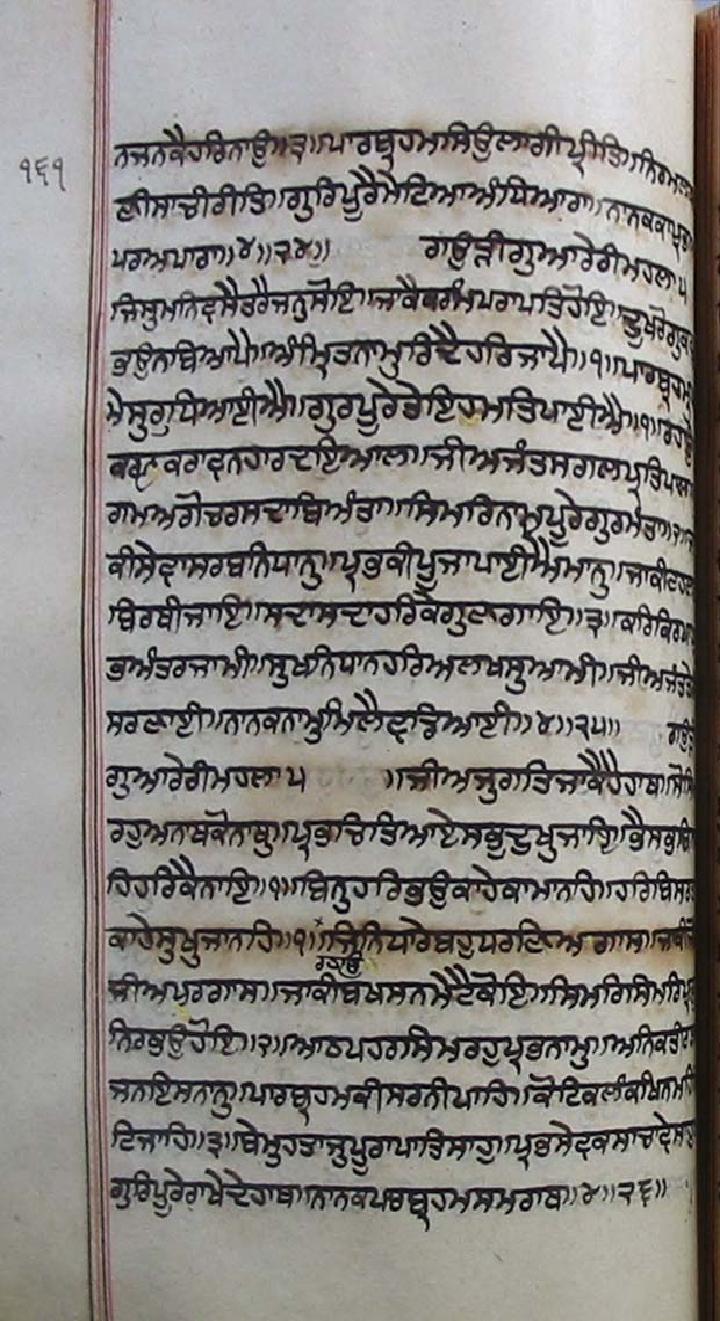 ੧੬੧
ਨਜਨਕੈਹਰਿਨਾਉ॥੩॥ਪਾਰਬ੍ਰਹਮਸਿਉਲਾਗੀਪ੍ਰੀਤਿ॥ਨਿਰਮਲ
ਣੀਸਾਚੀਰੀਤਿ॥ਗੁਰਿਪੂਰੈਮੇਟਿਆਅੰਧਿਆਰਾ॥ਨਾਨਕਕਾਪ੍ਰਭ
ਪਰਅਪਾਰਾ॥੪॥੨੪॥ ਗਉੜੀਗੁਆਰੇਰੀਮਹਲਾ੫
ਜਿਸੁਮਨਿਵਸੈਤਰੈਜਨੁਸੋਇ॥ਜਾਕੈਕਰੰਮਪਰਾਪਤਿਹੋਇ॥ਦੂਖਰੋਗੁਕ
ਭਉਨਾਬਿਆਪੈ॥ਅੰਮ੍ਰਿਤਨਾਮੁਰਿਦੈਹਰਿਜਾਪੈ॥੧॥ਪਾਰਬ੍ਰਹਮੁ
ਮੇਸੁਰੁਧਿਆਈਐ॥ਗੁਰਪੂਰੇਤੇਇਹਮਤਿਪਾਈਐ॥੧॥ਰਹਾਉ
ਕਰਣਕਰਾਵਨਹਾਰਦਇਆਲ॥ਜੀਅਜੰਤਸਗਲਪ੍ਰਤਿਪਾਲ
ਗਮਅਗੋਚਰਸਦਾਬਿਅੰਤਾ॥ਸਿਮਰਿਮਨਾਪੂਰੇਗੁਰਮੰਤਾ॥੨॥ਜ
ਕੀਸੇਵਾਸਰਬਨਿਧਾਨੁ॥ਪ੍ਰਭਕੀਪੂਜਾਪਾਈਐਮਾਨੁ॥ਜਾਕੀਟਹਲ
ਬਿਰਥੀਜਾਇ॥ਸਦਾਸਦਾਹਰਿਕੇਗੁਣਗਾਇ॥੩॥ਕਰਿਕਿਰਪਾ
ਭਅੰਤਰਜਾਮੀ॥ਸੁਖਨਿਧਾਨਹਰਿਅਲਖਸੁਆਮੀ॥ਜੀਅਜੰਤਤੇ
ਸਰਣਾਈ॥ਨਾਨਕਨਾਮੁਮਿਲੈਵਡਿਆਈ॥੪॥੨੫॥ ਗਉੜੀ
ਗੁਆਰੇਰੀਮਹਲਾ੫ ॥ਜੀਅਜੁਗਤਿਜਾਕੈਹੈਹਾਥ॥ਸੋਸਿ
ਰਹੁਅਨਾਥਕੋਨਾਥੁ॥ਪ੍ਰਭਚਿਤਿਆਏਸਭੁਦੁਖੁਜਾਇ॥ਭੈਸਭਬਿ
ਹਿਹਰਿਕੈਨਾਇ॥੧॥ਬਿਨੁਹਰਿਭਉਕਾਹੇਕਾਮਾਨਹਿ॥ਹਰਿਬਿਸਰ
ਕਾਹੇਸੁਖੁਜਾਨਹਿ॥੧॥ਜਿਨਿਧਾਰੇਬਹੁਧਰਣਿਅਗਾਸ॥ਜਾਕੀਜੋ
ਰਹਾਉ
ਜੀਅਪਰਗਾਸ॥ਜਾਕੀਬਖਸਨਮੇਟੈਕੋਇ॥ਸਿਮਰਿਸਿਮਰਿਪ੍ਰ
ਨਿਰਭਉਹੋਇ॥੨॥ਆਠਪਹਰਸਿਮਰਹੁਪ੍ਰਭਨਾਮੁ॥ਅਨਿਕਤੀਰ
ਜਨਇਸਨਾਨੁ॥ਪਾਰਬ੍ਰਹਮਕੀਸਰਨੀਪਾਹਿ॥ਕੋਟਿਕਲੰਕਖਿਨਮਹਿ
ਟਿਜਾਹਿ॥੩॥ਬੇਮੁਹਤਾਜੁਪੂਰਾਪਾਤਿਸਾਹੁ॥ਪ੍ਰਭਸੇਵਕਸਾਚਾਵੇਸਾ
ਗੁਰਿਪੂਰੇਰਾਖੇਦੇਹਾਥ॥ਨਾਨਕਪਾਰਬ੍ਰਹਮਸਮਰਾਥ॥੪॥੨੬॥